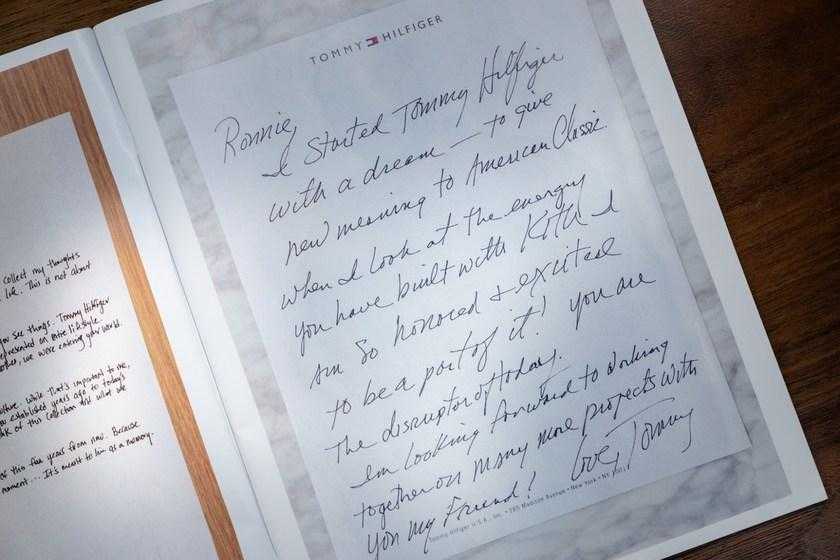 collect my thoughts
life. This is not about
you see things. Tommy Hilfiger
represented an entire lifestyle.
we were entering your world.
culture. While that's important to me,
you established years ago to today's
of this collection that what we
for this five years from now. Because
moment... It's meant to live as a memory.
TOMMY HILFIGER
Ronnie,
I Started Tommy Hilfiger
with a dream — to give
new meaning to American Classic.
When I look at the energy
you have built with Kith I
am so honored & excited
to be a part of it! you are
The disruptor of today.
I'm looking forward to working
together on many more projects with
you my Friend! Love, Tommy
Tommy Hilfiger U.S.A., Inc. • 285 Madison Avenue • New York • NY